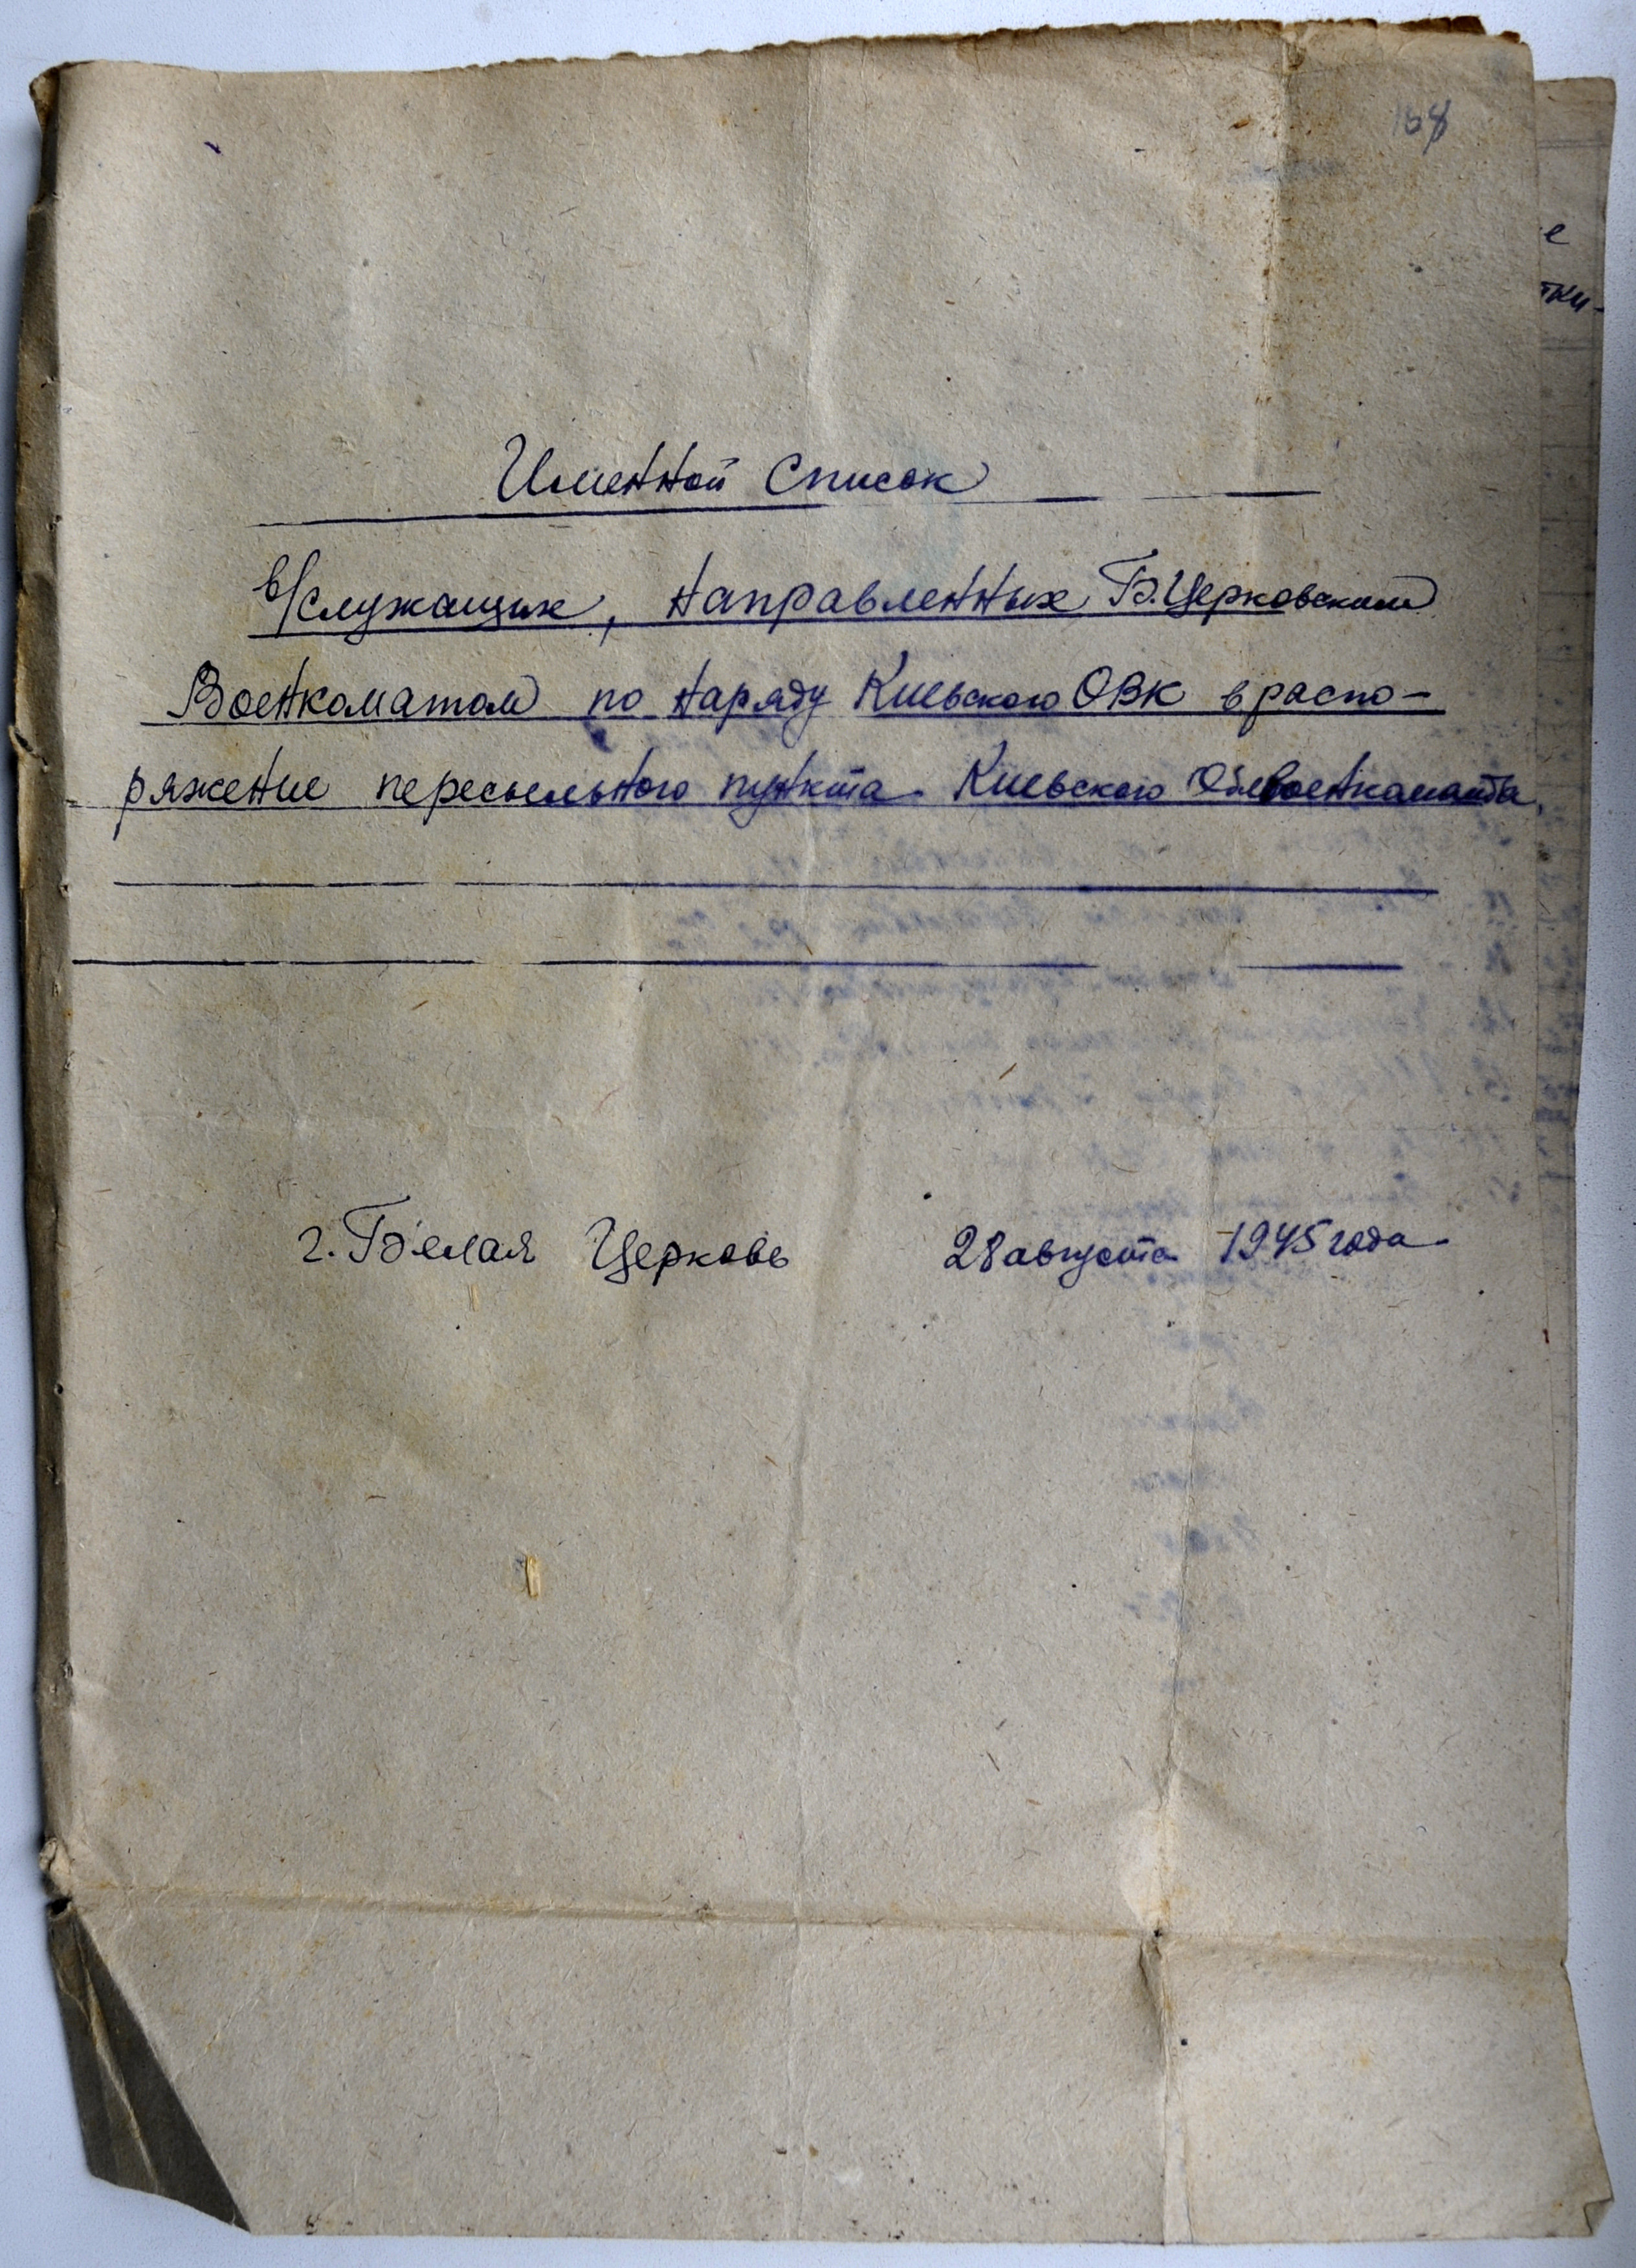 Именной список
в/служащих, направленных Б.Церковским
Военкоматом по наряду Киевского ОВК в распо-
ряжение пересыльного пункта Киевского Облвоенкомата
г. Белая Церковь 28 августа 1945 года